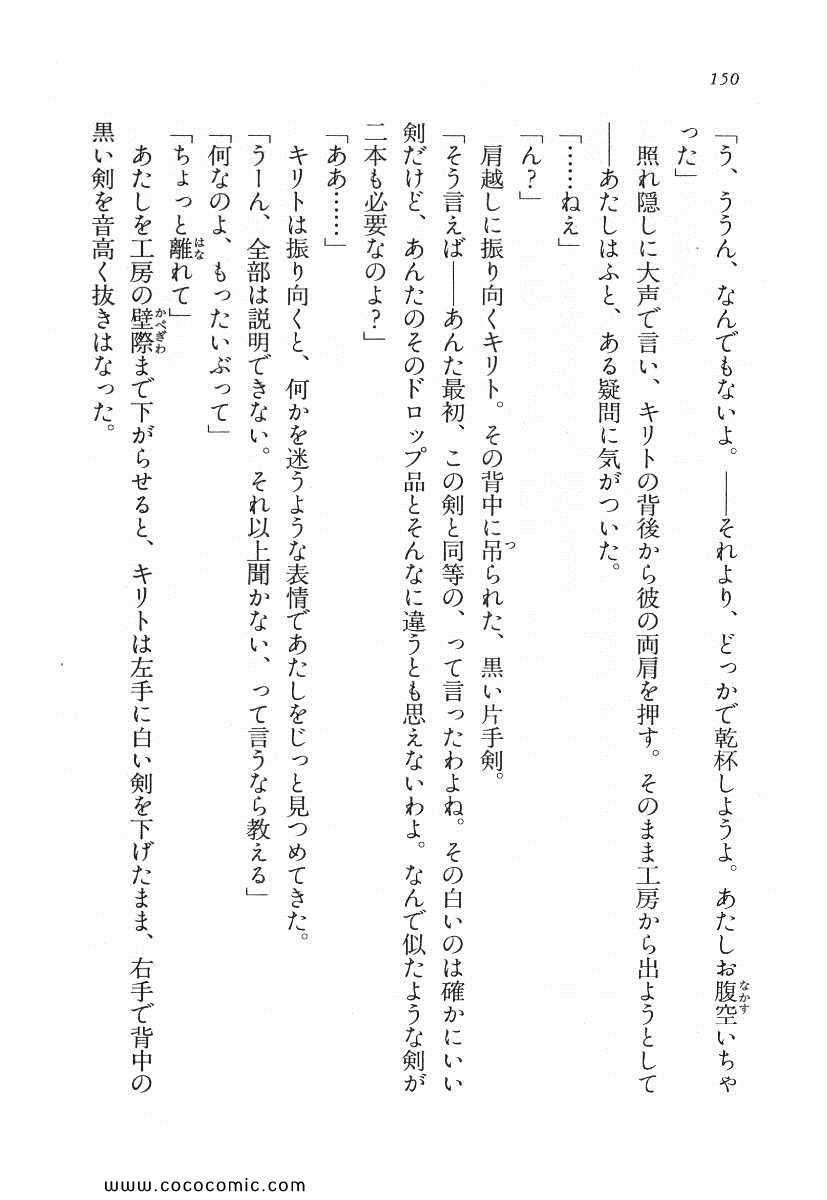 150
「う、ううん、なんでもないよ。――それより、どっかで乾杯しようよ。あたしお腹空いちゃ
った」
照れ隠しに大声で言い、キリトの背後から彼の両肩を押す。そのまま工房から出ようとして
――あたしはふと、ある疑問に気がついた。
「……ねえ」
「ん?」
肩越しに振り向くキリト。その背中に吊られた、黒い片手剣。
「そう言えば――あんた最初、この剣と同等の、って言ったわよね。その白いのは確かにいい
剣だけど、あんたのそのドロップ品とそんなに違うとも思えないわよ。なんで似たような剣が
二本も必要なのよ?」
「ああ……」
キリトは振り向くと、何かを迷うような表情であたしをじっと見つめてきた。
「うーん、全部は説明できない。それ以上聞かない、って言うなら教える」
「何なのよ、もったいぶって」
「ちょっと離れて」
あたしを工房の壁際まで下がらせると、キリトは左手に白い剣を下げたまま、右手で背中の
黒い剣を音高く抜きはなった。
www.cococomic.com/